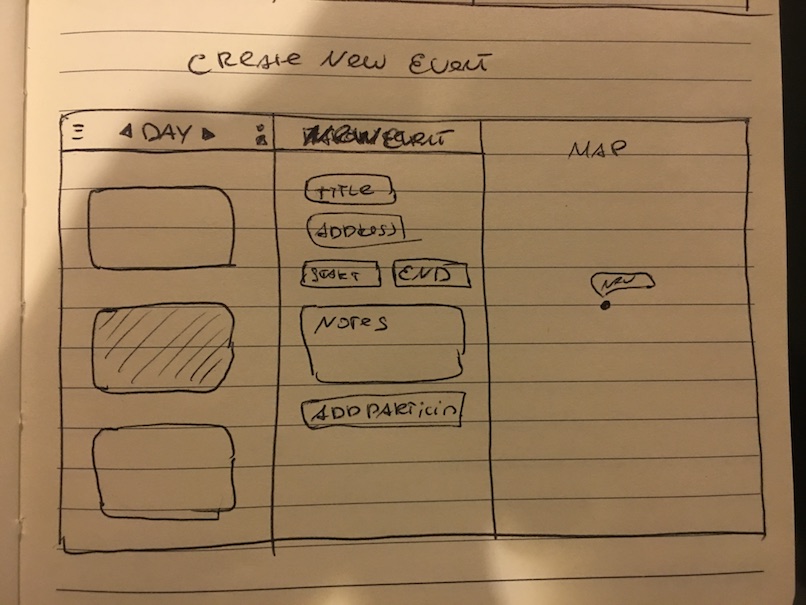 CREATE NEW EVENT
DAY
EVENT
MAP
TITLE
ADDRESS
START
END
NEW
NOTES
ADD PARTICIP